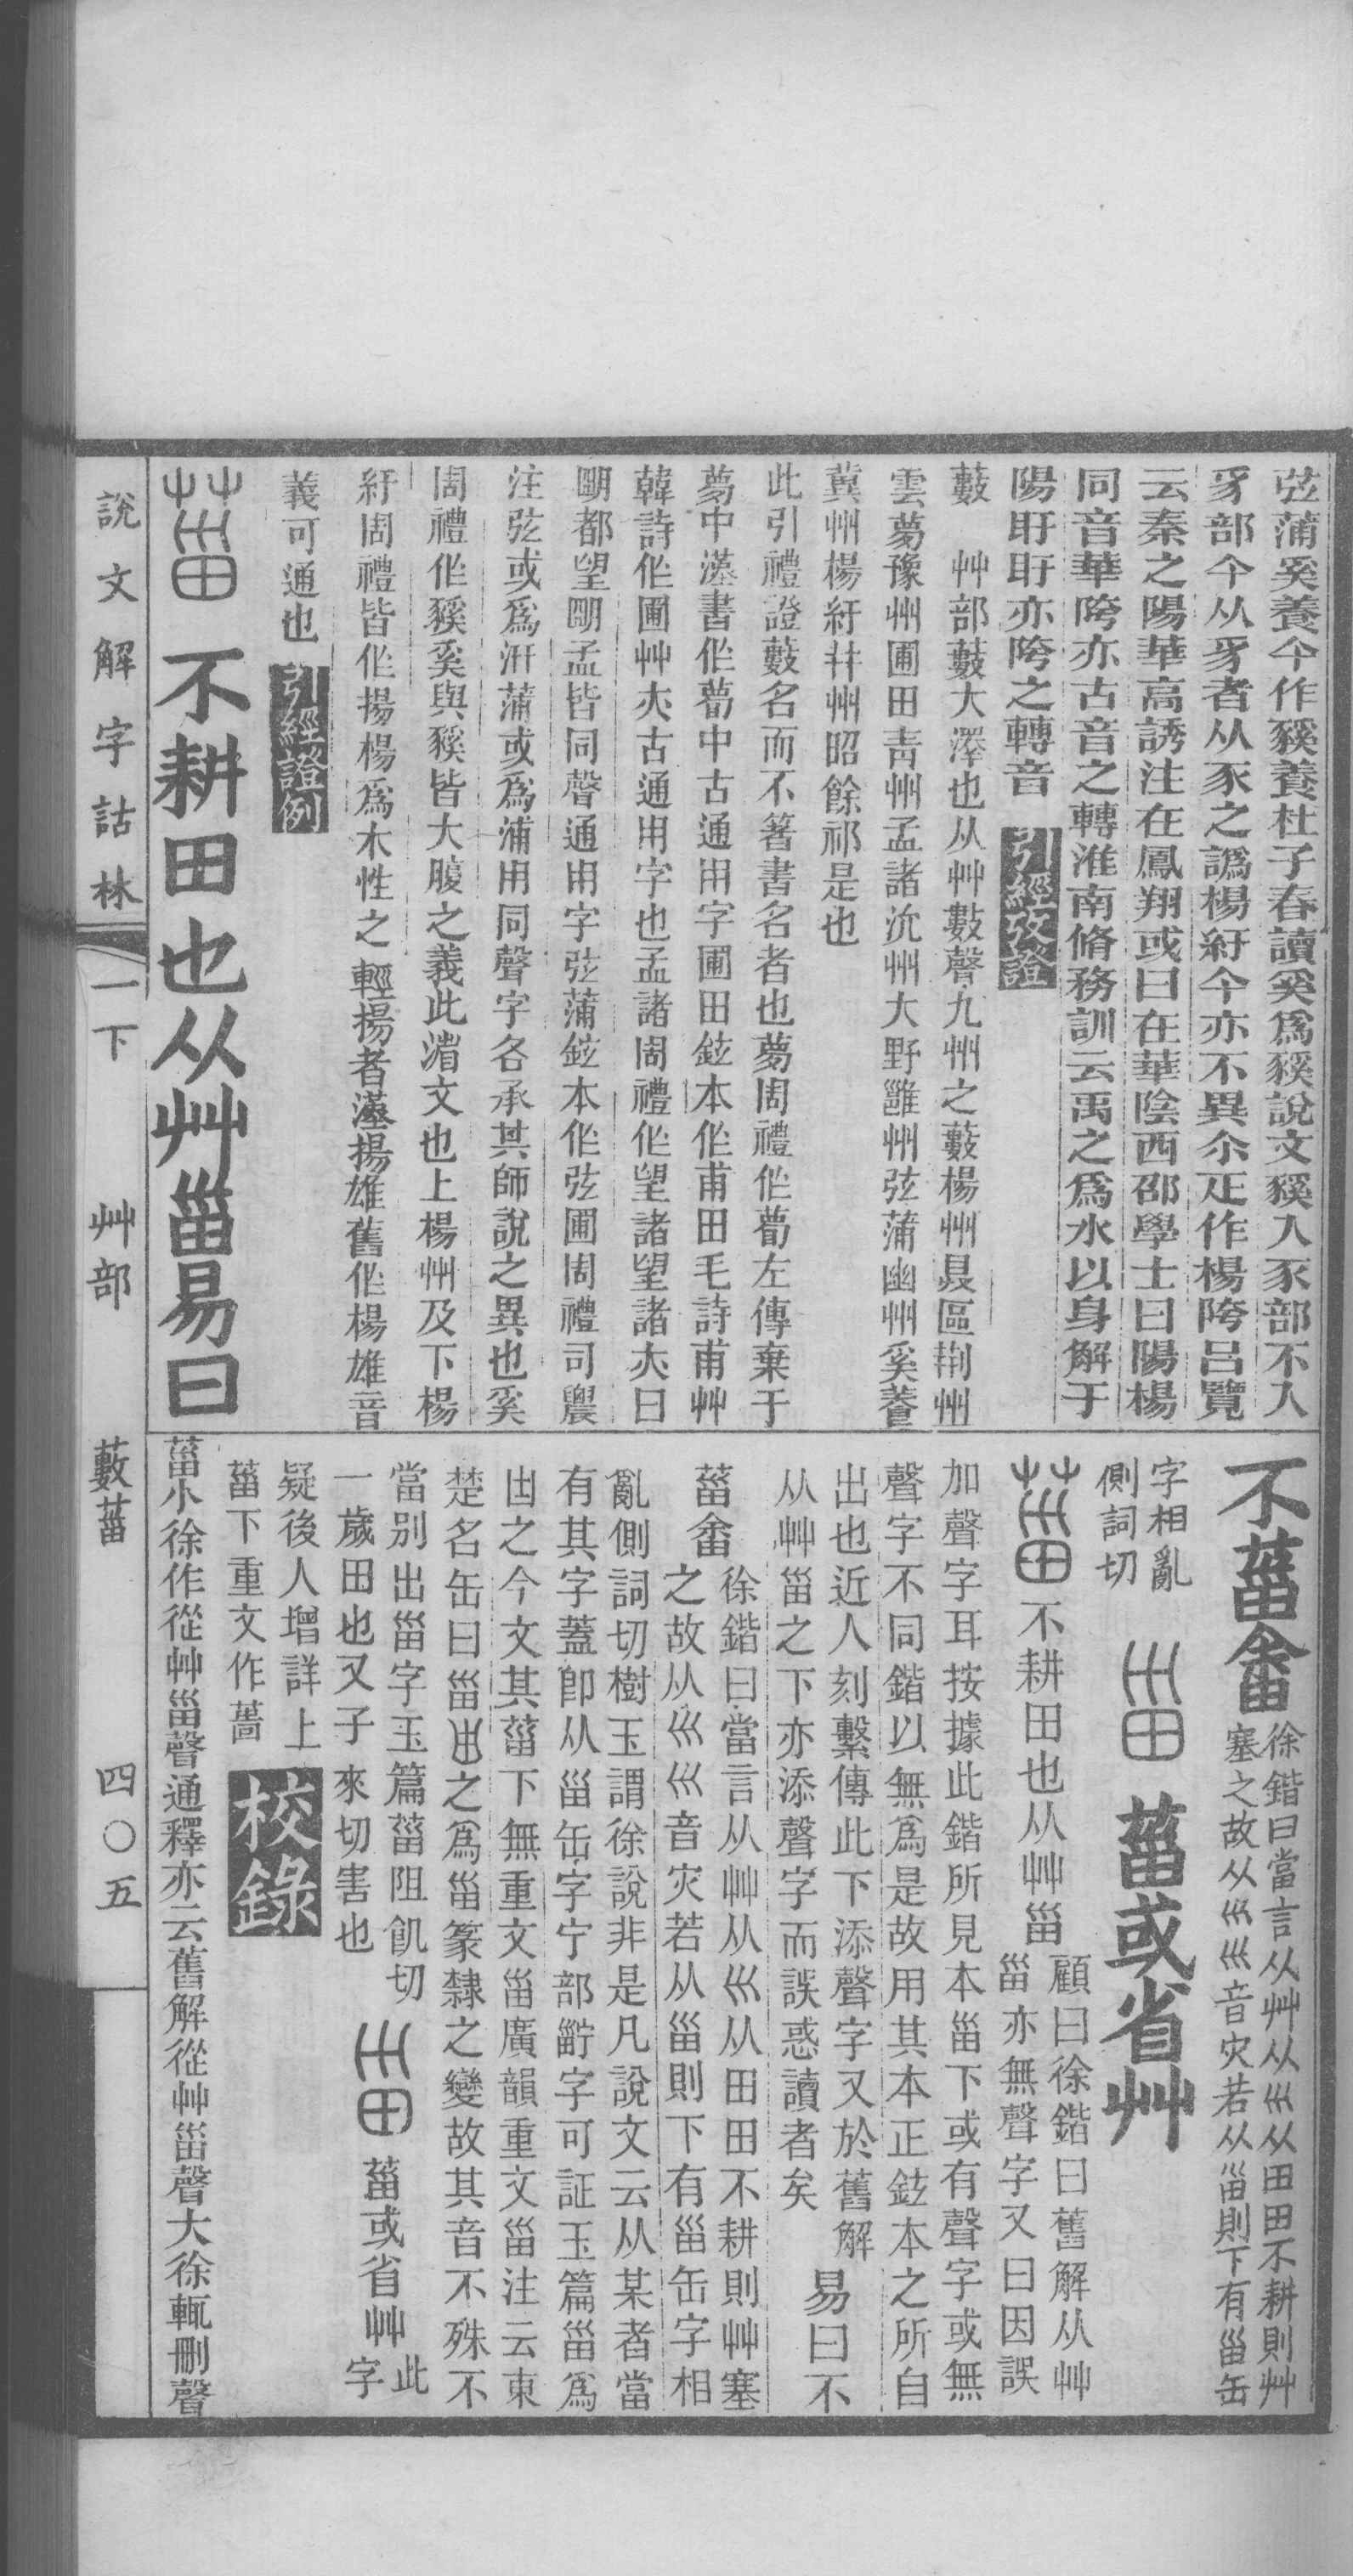 弦蒲奚養今作豯養杜子春讀奚爲豯說文豯入豕部不入
豸部今从豸者从豕之譌楊紆今亦不異尒疋作楊陓呂覽
云秦之陽華高誘注在鳳翔或曰在華陰西邵學士曰陽楊
同音華陓亦古音之轉淮南脩務訓云禹之爲水以身解于
陽盱盱亦陓之轉音 引經攷證
藪 艸部藪大澤也从艸數聲九州之藪楊州具區荆州
雲夢豫州圃田靑州孟諸沇州大野雝州弦蒲幽州奚養
冀州楊紆幷州昭餘祁是也
此引禮證藪名而不箸書名者也夢周禮作瞢左傳棄于
夢中漢書作瞢中古通用字圃田鉉本作甫田毛詩甫艸
韓詩作圃艸亦古通用字也孟諸周禮作望諸望諸亦曰
明都望明孟皆同聲通用字弦蒲鉉本作弦圃周禮司農
注弦或爲汧蒲或爲浦用同聲字各承其師說之異也奚
周禮作豯奚與豯皆大腹之義此渻文也上楊州及下楊
紆周禮皆作揚楊爲木性之輕揚者漢揚雄舊作楊雄音
義可通也 引經證例
菑 不耕田也从艸甾易曰
說文解字詁林 一下 艸部 藪菑 四〇五
不菑畬 徐鍇曰當言从艸从巛从田田不耕則艸
塞之故从巛巛音灾若从甾則下有甾缶
字相亂
側詞切 甾 菑或省艸
菑 不耕田也从艸甾 顧曰徐鍇曰舊解从艸
甾亦無聲字又曰因誤
加聲字耳按據此鍇所見本甾下或有聲字或無
聲字不同鍇以無爲是故用其本正鉉本之所自
出也近人刻繫傳此下添聲字又於舊解
从艸甾之下亦添聲字而誤惑讀者矣 易曰不
菑畬 徐鍇曰當言从艸从巛从田田不耕則艸塞
之故从巛巛音灾若从甾則下有甾缶字相
亂側詞切樹玉謂徐說非是凡說文云从某者當
有其字蓋卽从甾缶字宁部㽕字可証玉篇甾爲
甴之今文其菑下無重文甾廣韻重文甾注云東
楚名缶曰甾甴之爲甾篆隸之變故其音不殊不
當別出甾字玉篇菑阻飢切
一歲田也又子來切害也 甾 菑或省艸 此字
疑後人增詳上
菑下重文作薔 校錄
菑小徐作從艸甾聲通釋亦云舊解從艸甾聲大徐輒刪聲